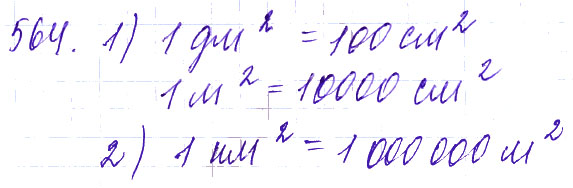 564. 1) 1 дм² = 100 см²
1 м² = 10000 см²
2) 1 км² = 1 000 000 м²